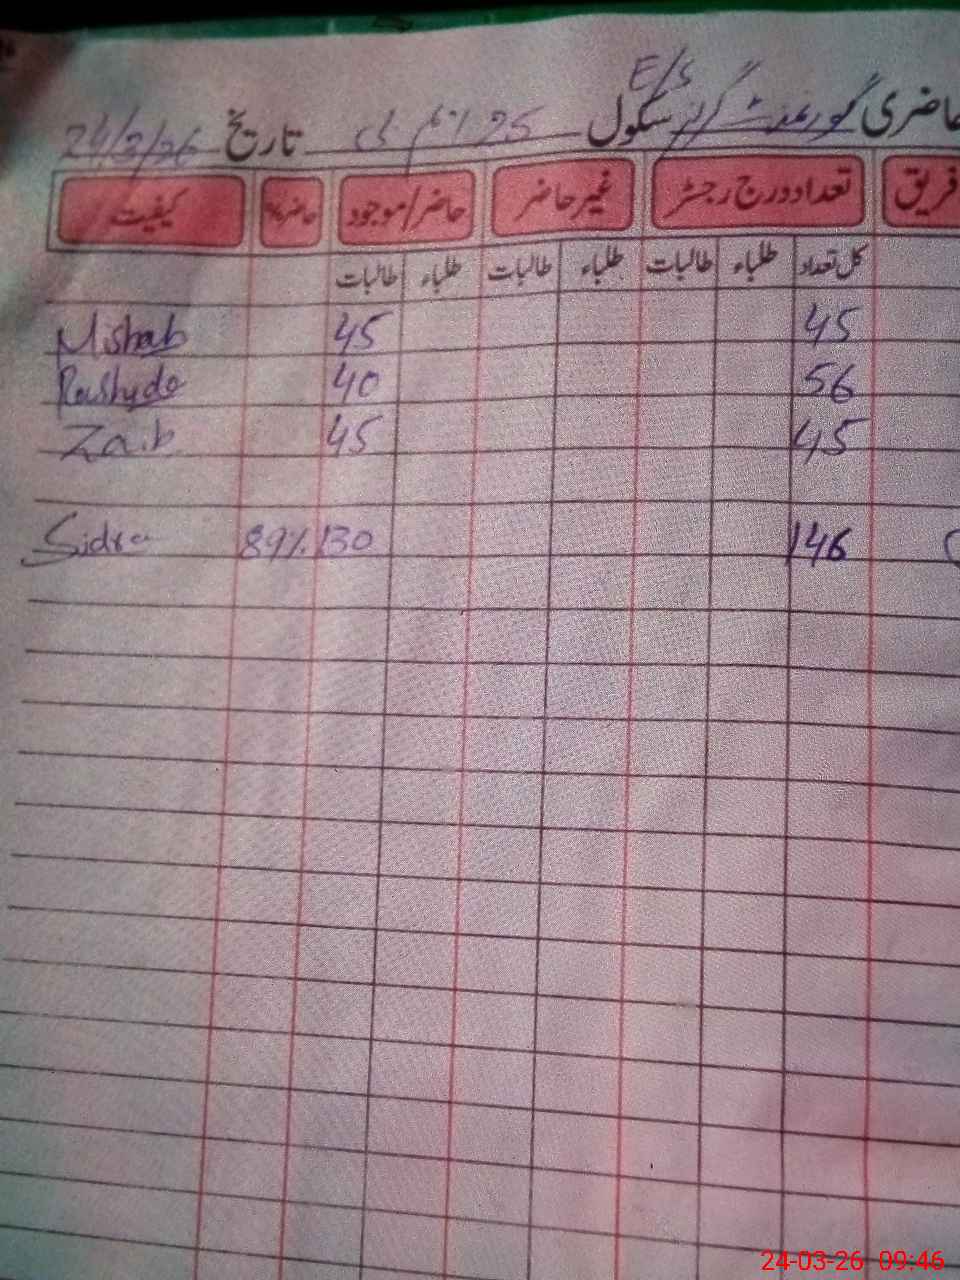 E/S
حاضری گورنمنٹ گرلز سکول 25 ایم بی تاریخ 24/3/26
فریق تعداد درج رجسٹر غیر حاضر حاضر/موجود حاضر% کیفیت
کل تعداد طلباء طالبات طلباء طالبات طلباء طالبات
45 45 Misbah
56 40
45 45 Zaib
146 130 89% Sidra
24-03-26 09:46